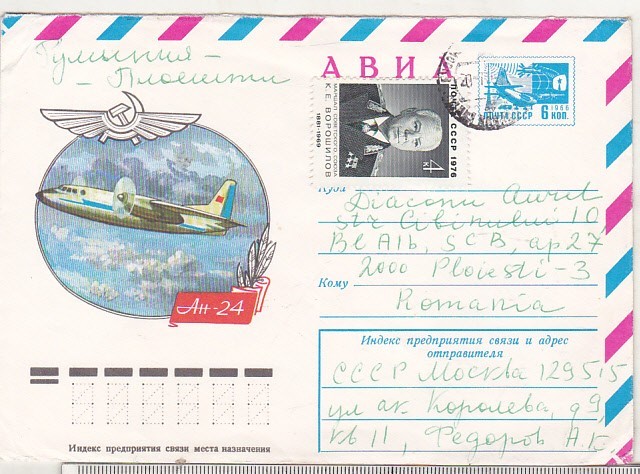 Румыния -
- Плоешти
АВИА
ПОЧТА СССР 1976
МАРШАЛ СОВЕТСКОГО СОЮЗА
К. Е. ВОРОШИЛОВ
1881-1969
4 к
1966
ПОЧТА СССР 6 КОП.
Ан-24
Куда Diaconu Aurel
str Cibinului 10
Bl A1b, SCB, ap 27
2000 Ploiesti - 3
Кому
Romania
Индекс предприятия связи и адрес
отправителя
СССР Москва 129515
ул ак Королева, д 9,
кв 11, Федоров А.К
Индекс предприятия связи места назначения